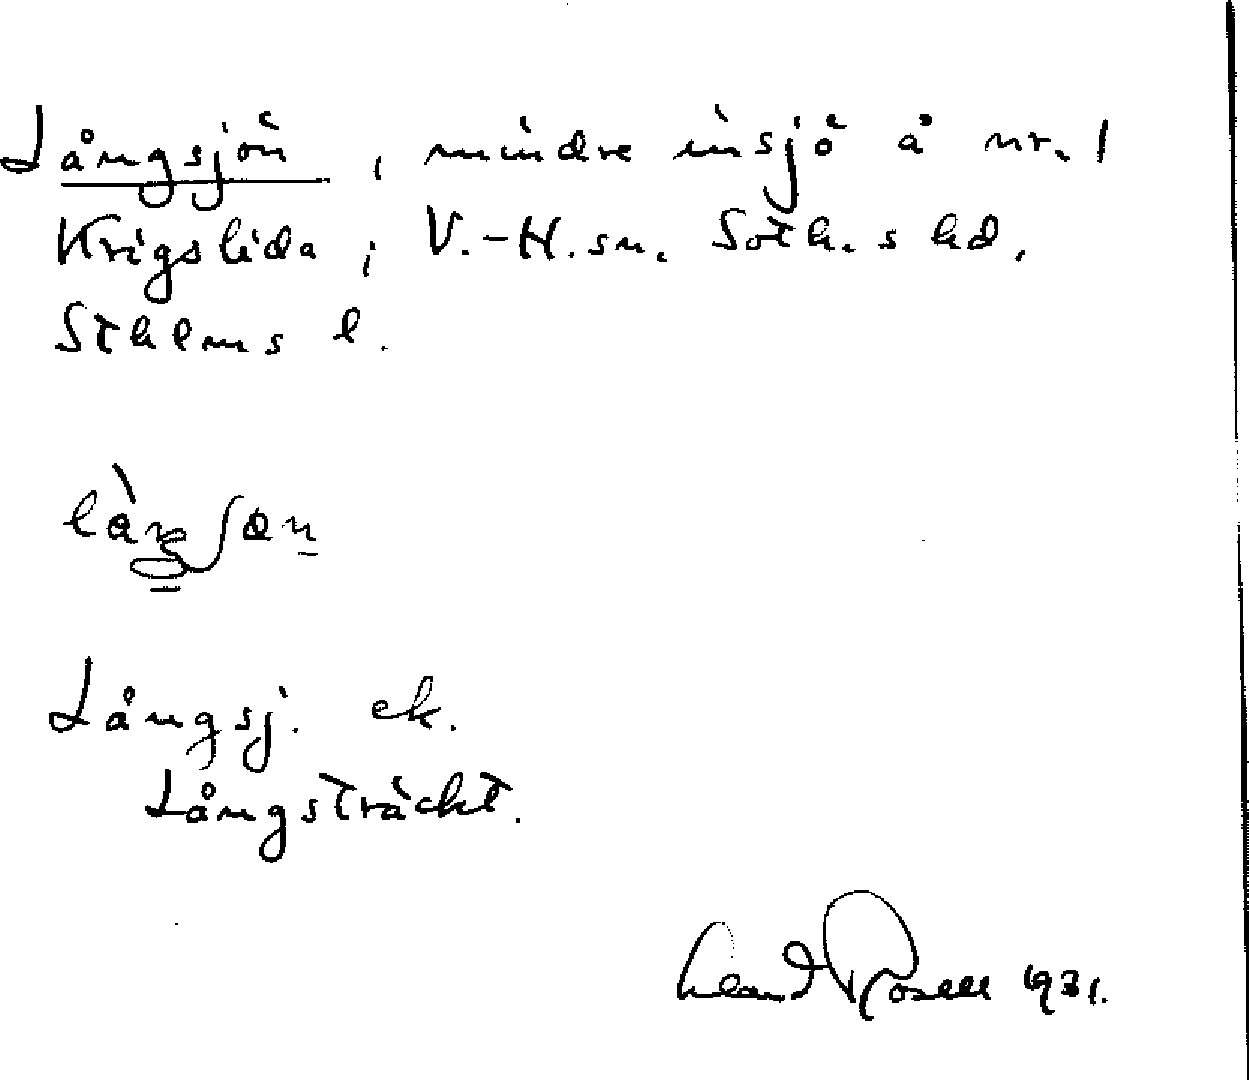 Långsjön, mindre insjö å nr. 1
Krigslida, V.-H. sn. Soth. s hd,
Sthlms l.
Långsj. ek.
Långsträckt.
Rosell 1931.